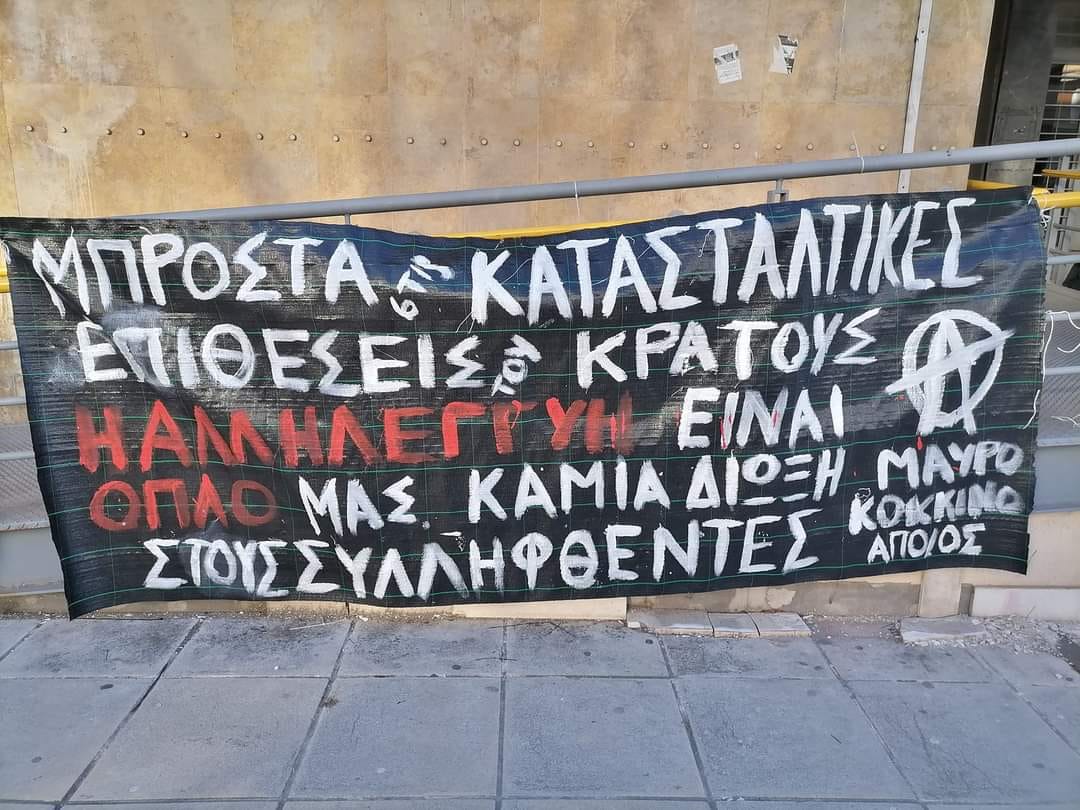 ΜΠΡΟΣΤΑ στις ΚΑΤΑΣΤΑΛΤΙΚΕΣ
ΕΠΙΘΕΣΕΙΣ ΤΟΥ ΚΡΑΤΟΥΣ
Η ΑΛΛΗΛΕΓΓΥΗ ΕΙΝΑΙ
ΟΠΛΟ ΜΑΣ. ΚΑΜΙΑ ΔΙΩΞΗ
ΣΤΟΥΣ ΣΥΛΛΗΦΘΕΝΤΕΣ
ΜΑΥΡΟ
ΚΟΚΚΙΝΟ